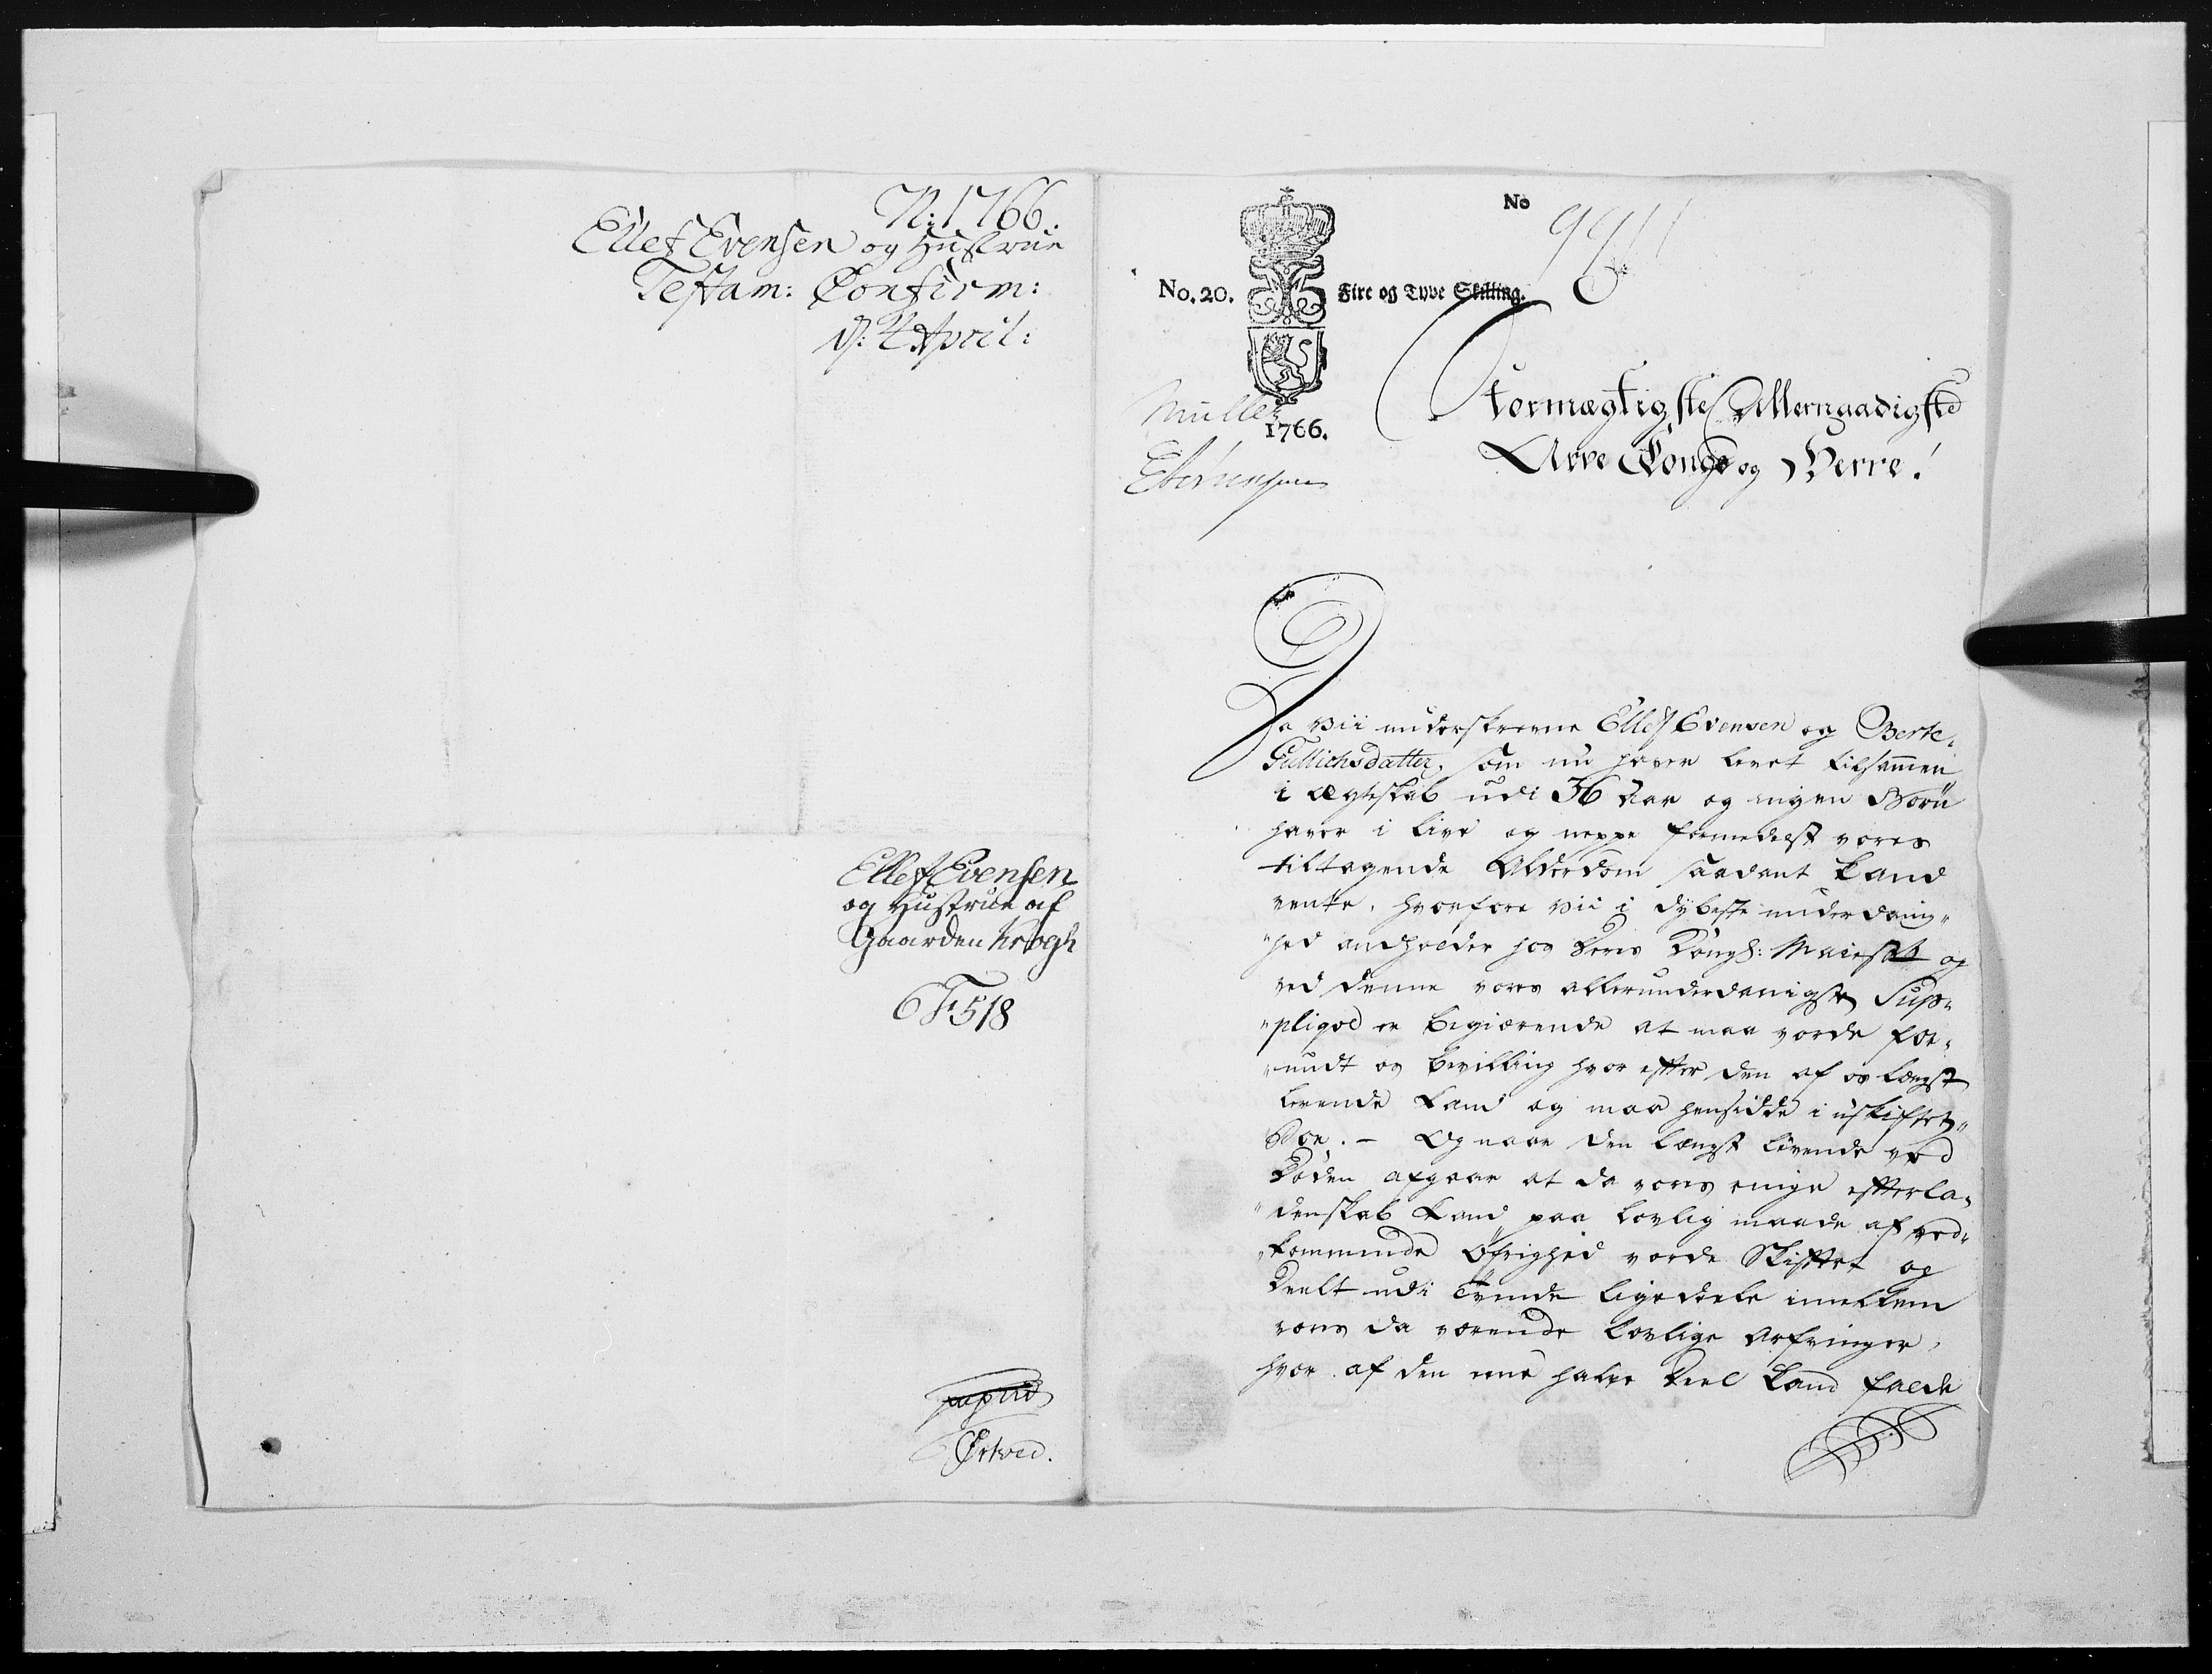 N: 1766.
Ellef Evensen og Hustrue
Testam: Confirm:
d: 4 April:
Ellef Evensen
og Hustrue af
Gaarden Krogh
F 518
Ørtved.
No
No. 20.
Fire og Tyve Skilling.
Müller
1766.
Stormægtigste Allernaadigste
Arve Konge og Herre!
Da vii underskrevne Ellef Evensen og Berte
Gullichsdatter, som nu haver levet tilsammen
i Ægteskab udi 36 Aar og ingen Børn
haver i Live og neppe formedelst vores
tiltagende Alderdom saadant kand
vente, hvorfore vii i dybeste underdanig„
„hed andholder hos Deres Kongl: Maiestt og
ved denne vores allerunderdanigste Sup„
„pliqve er begiærende at maa vorde for„
„undt os bevilling hvor efter den af os længst
levende kand og maa hensidde i uskiftet
Boe. - Og naar den længst levende ved
Døden afgaar at da vores ringe efterla„
„denskab kand paa lovlig maade af ved„
„kommende Øfrighed vorde Skiftet og
Deelt udi tvende ligedeele imellem
vores da værende lovlige Arfvinger,
hvor af den eene halve Deel kand falde